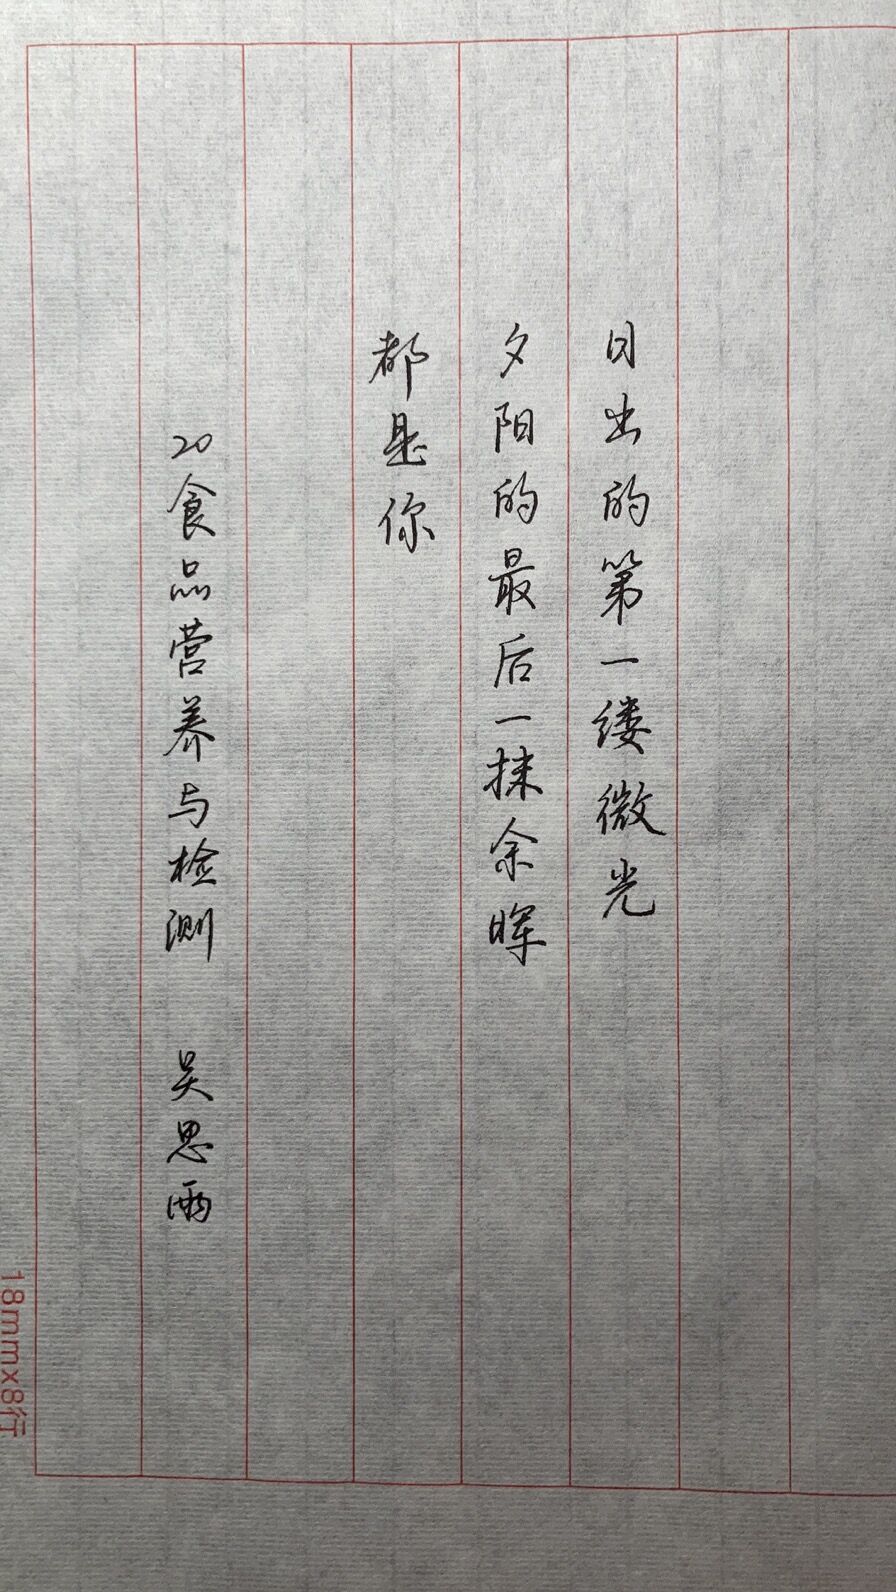 日出的第一缕微光
夕阳的最后一抹余晖
都是你
20食品营养与检测 吴思雨
18mmx8行